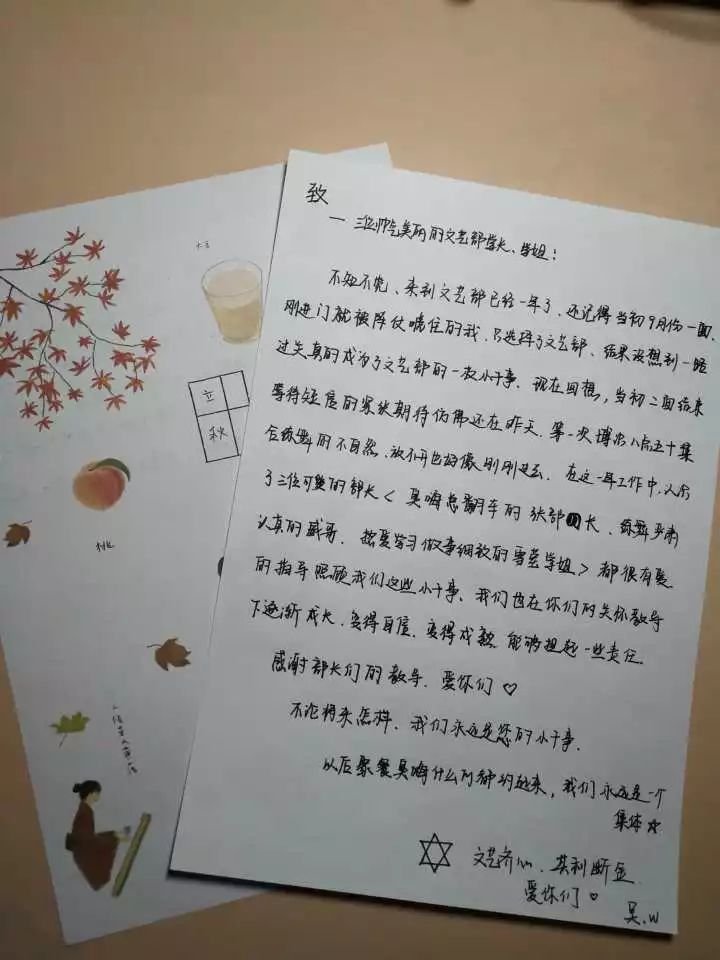 致
一 三位帅气美丽的文艺部学长、学姐：
不知不觉、来到文艺部已经一年了，还记得当初9月份一面，
刚进门就被阵仗唬住的我，只选择了文艺部、结果没想到一晤
过关真的成为了文艺部的一枚小干事。现在回想，当初二面结束
等待短信的紧张期待仿佛还在昨天，第一次博
合练舞的不自然，放不开也好像刚刚过去。在这一年工作中，认识
了三位可爱的部长<吴嗨总翻车的张部长、练舞严肃
认真的威哥、热爱学习做事细致的雪莹学姐>都很有爱
的指导照顾我们这些小干事、我们也在你们的关怀教导
下逐渐成长，变得自信，变得成熟，能够担起一些责任。
感谢部长们的教导，爱你们♡
不论将来怎样，我们永远是您的小干事。
以后聚餐吴嗨什么的都约起来，我们永远是一个
集体☆
文艺齐心、其利断金
爱你们♡
吴.W
大豆
立
秋
桃